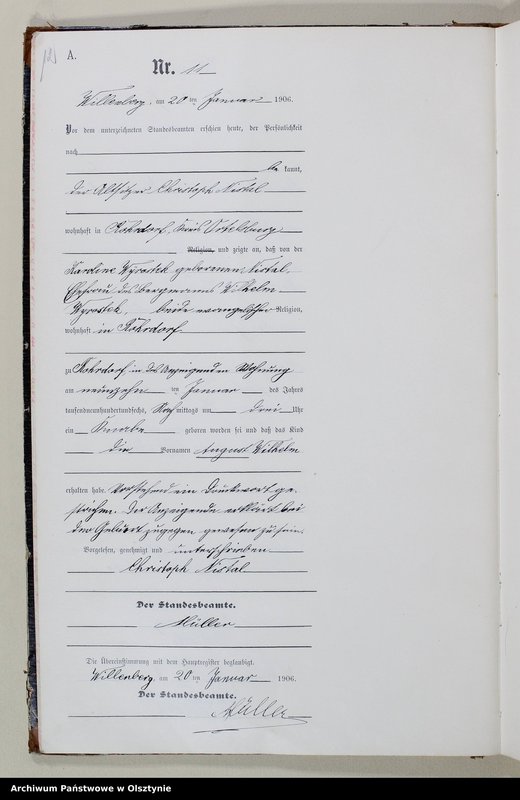 A.
Nr. 11
Willenberg, am 20 ten Januar 1906.
Vor dem unterzeichneten Standesbeamten erschien heute, der Persönlichkeit
nach
be kannt,
der Altsitzer Christoph Nistal
wohnhaft in Röhrdorf, Kreis Ortelsburg
Religion, und zeigte an, daß von der
Karoline Wyrostek geborenen Nistal,
Ehefrau des Bergmanns Wilhelm
Wyrostek, beide evangelischer Religion,
wohnhaft in Röhrdorf
zu Röhrdorf in des Anzeigenden Wohnung
am neunzehn ten Januar des Jahres
tausendneunhundertsechs, Nachmittags um drei Uhr
ein Knabe geboren worden sei und daß das Kind
die Vornamen August Wilhelm
erhalten habe. Vorstehend ein Druckwort ge-
strichen. Der Anzeigende erklärt bei
der Geburt zugegen gewesen zu sein.
Vorgelesen, genehmigt und unterschrieben
Christoph Nistal
Der Standesbeamte.
Müller
Die Übereinstimmung mit dem Hauptregister beglaubigt.
Willenberg, am 20 ten Januar 1906.
Der Standesbeamte.
Müller
Archiwum Państwowe w Olsztynie